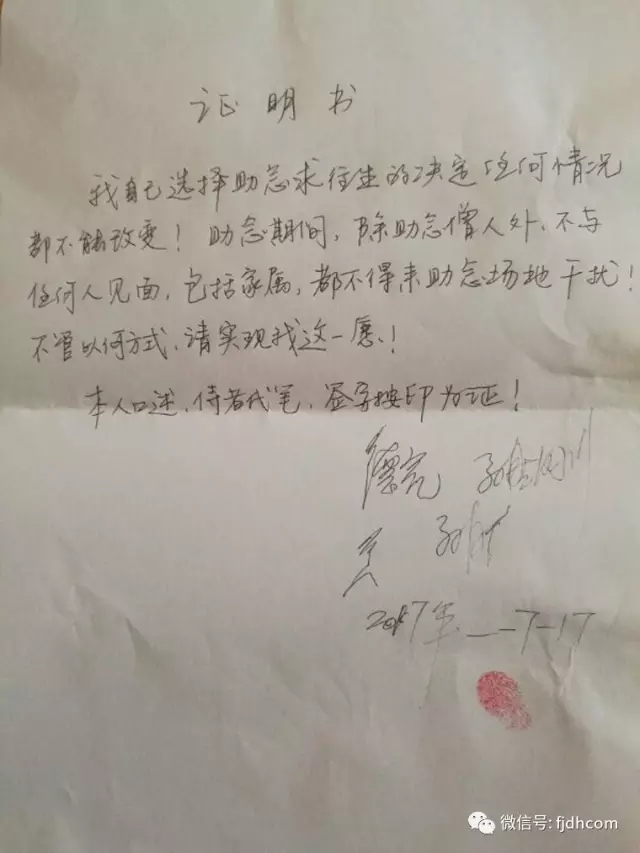 证明书
我自己选择助念求往生的决定任何情况
都不能改变！助念期间，除助念僧人外、不与
任何人见面，包括家属，都不得来助念场地干扰！
不管以何方式、请实现我这一愿！
本人口述、侍者代笔、签字按印为证！
德亮
2017年 7-17
微信号: fjdhcom